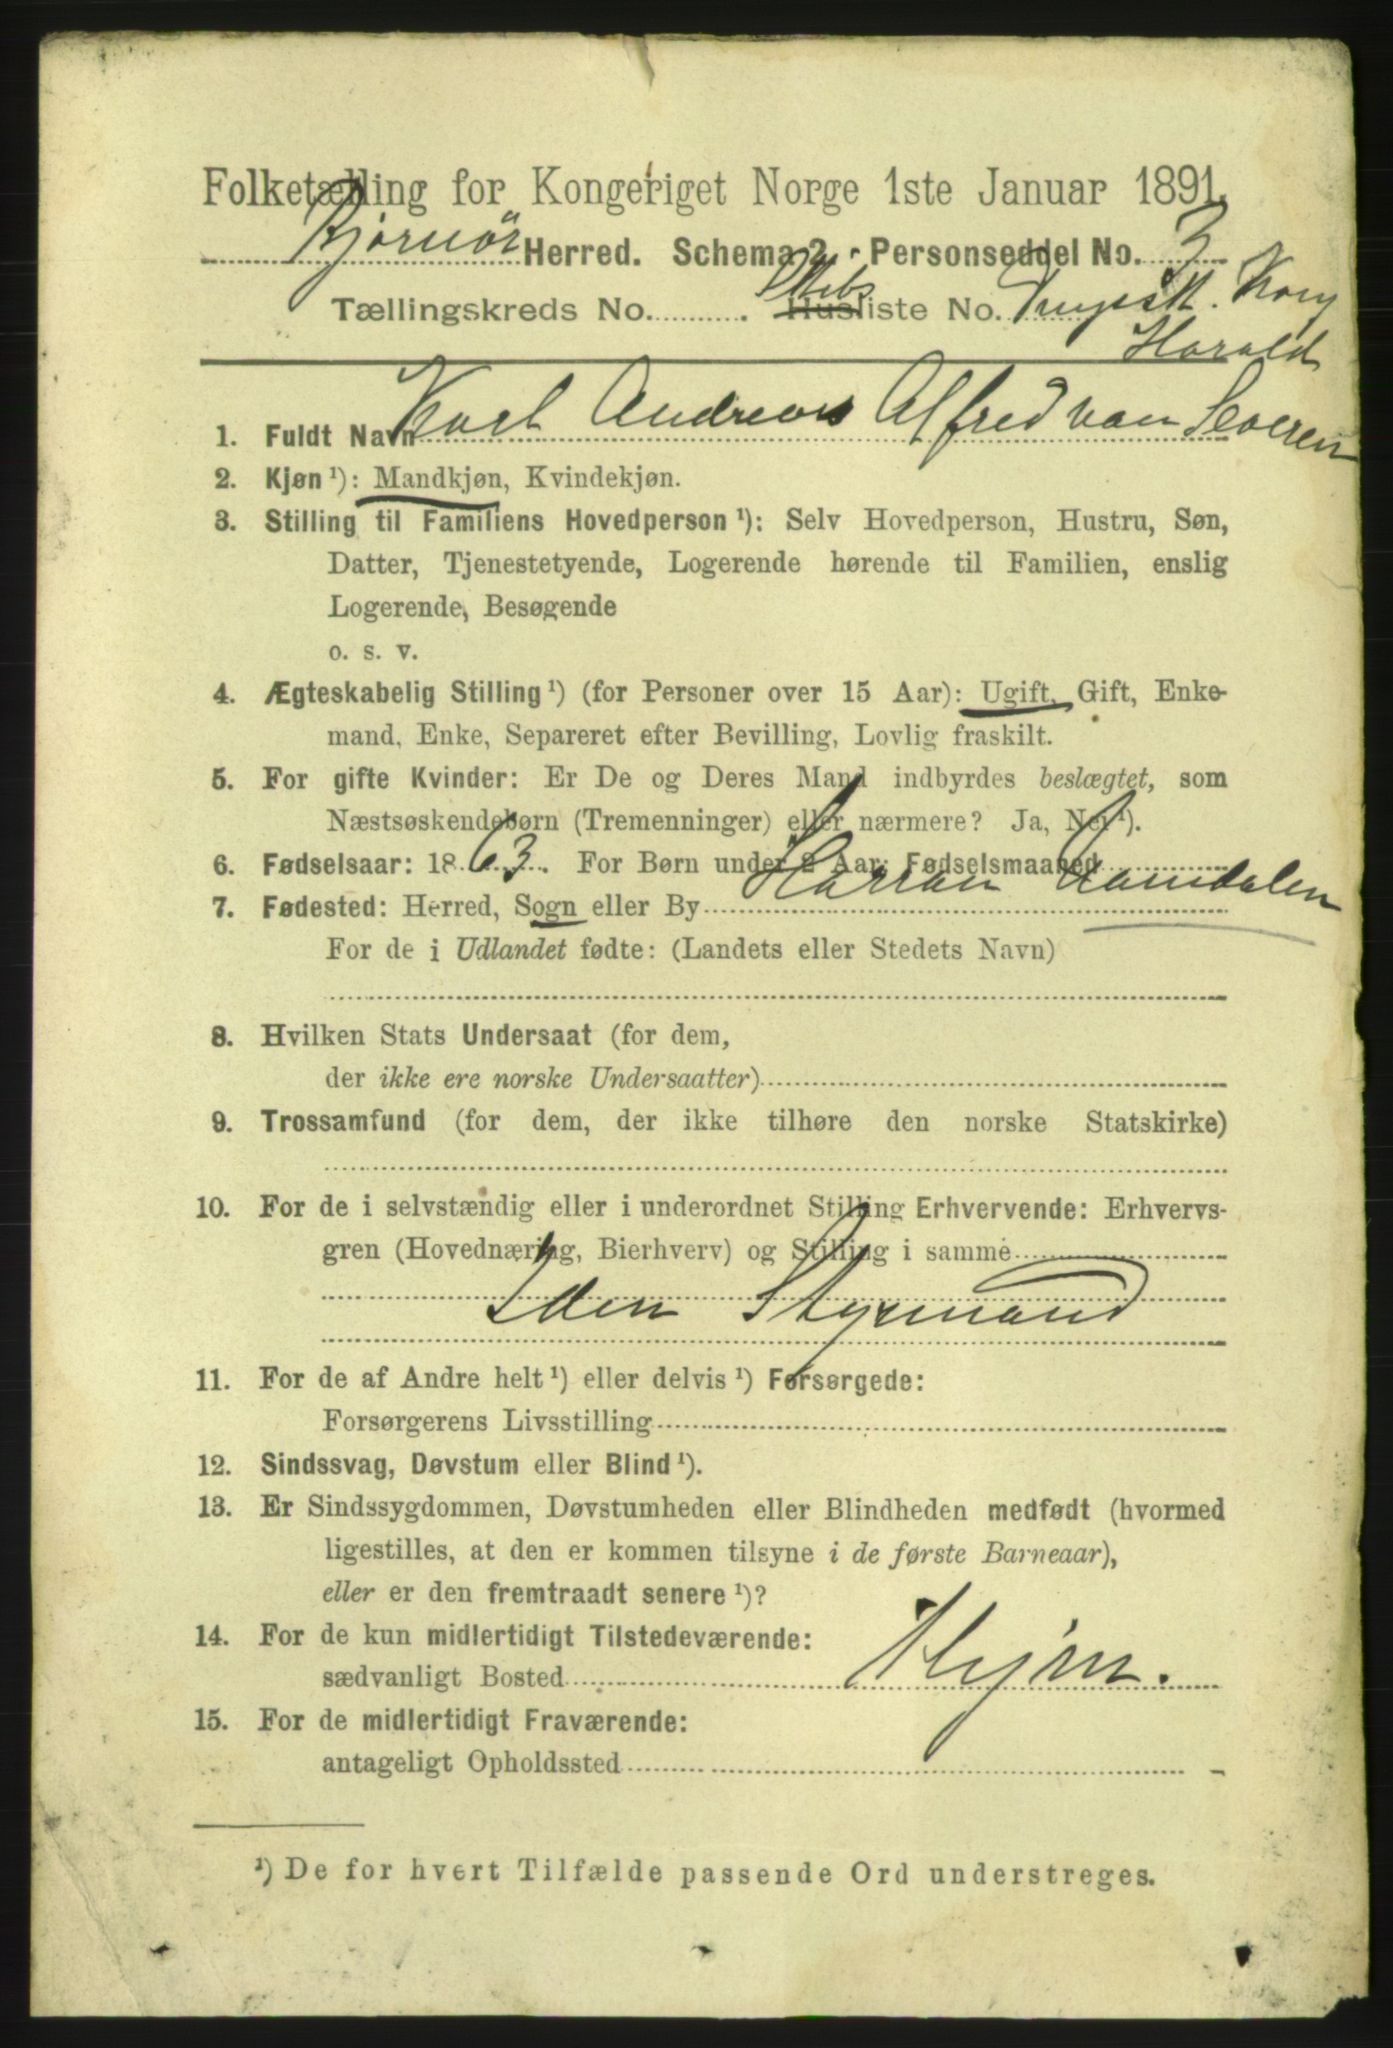 Folketælling for Kongeriget Norge 1ste Januar 1891.
Bjørnör Herred. Schema 2 · Personseddel No. 3
Tællingskreds No. . Skibs Husliste No. Dmpsk. Kong
Harald
1. Fuldt Navn Karl Andreas Alfred van Severen
2. Kjøn ¹): Mandkjøn, Kvindekjøn.
3. Stilling til Familiens Hovedperson ¹): Selv Hovedperson, Hustru, Søn,
Datter, Tjenestetyende, Logerende hørende til Familien, enslig
Logerende, Besøgende
o. s. v.
4. Ægteskabelig Stilling ¹) (for Personer over 15 Aar): Ugift, Gift, Enke-
mand, Enke, Separeret efter Bevilling, Lovlig fraskilt.
5. For gifte Kvinder: Er De og Deres Mand indbyrdes beslægtet, som
Næstsøskendebørn (Tremenninger) eller nærmere? Ja, Nei ¹).
6. Fødselsaar: 1863. For Børn under 2 Aar: Fødselsmaaned
7. Fødested: Herred, Sogn eller By Harran Namdalen
For de i Udlandet fødte: (Landets eller Stedets Navn)
8. Hvilken Stats Undersaat (for dem,
der ikke ere norske Undersaatter)
9. Trossamfund (for dem, der ikke tilhøre den norske Statskirke)
10. For de i selvstændig eller i underordnet Stilling Erhvervende: Erhvervs-
gren (Hovednæring, Bierhverv) og Stilling i samme
2den Styrmand
11. For de af Andre helt ¹) eller delvis ¹) Forsørgede:
Forsørgerens Livsstilling
12. Sindssvag, Døvstum eller Blind ¹).
13. Er Sindssygdommen, Døvstumheden eller Blindheden medfødt (hvormed
ligestilles, at den er kommen tilsyne i de første Barneaar),
eller er den fremtraadt senere ¹)?
14. For de kun midlertidigt Tilstedeværende:
sædvanligt Bosted Thjem.
15. For de midlertidigt Fraværende:
antageligt Opholdssted
¹) De for hvert Tilfælde passende Ord understreges.